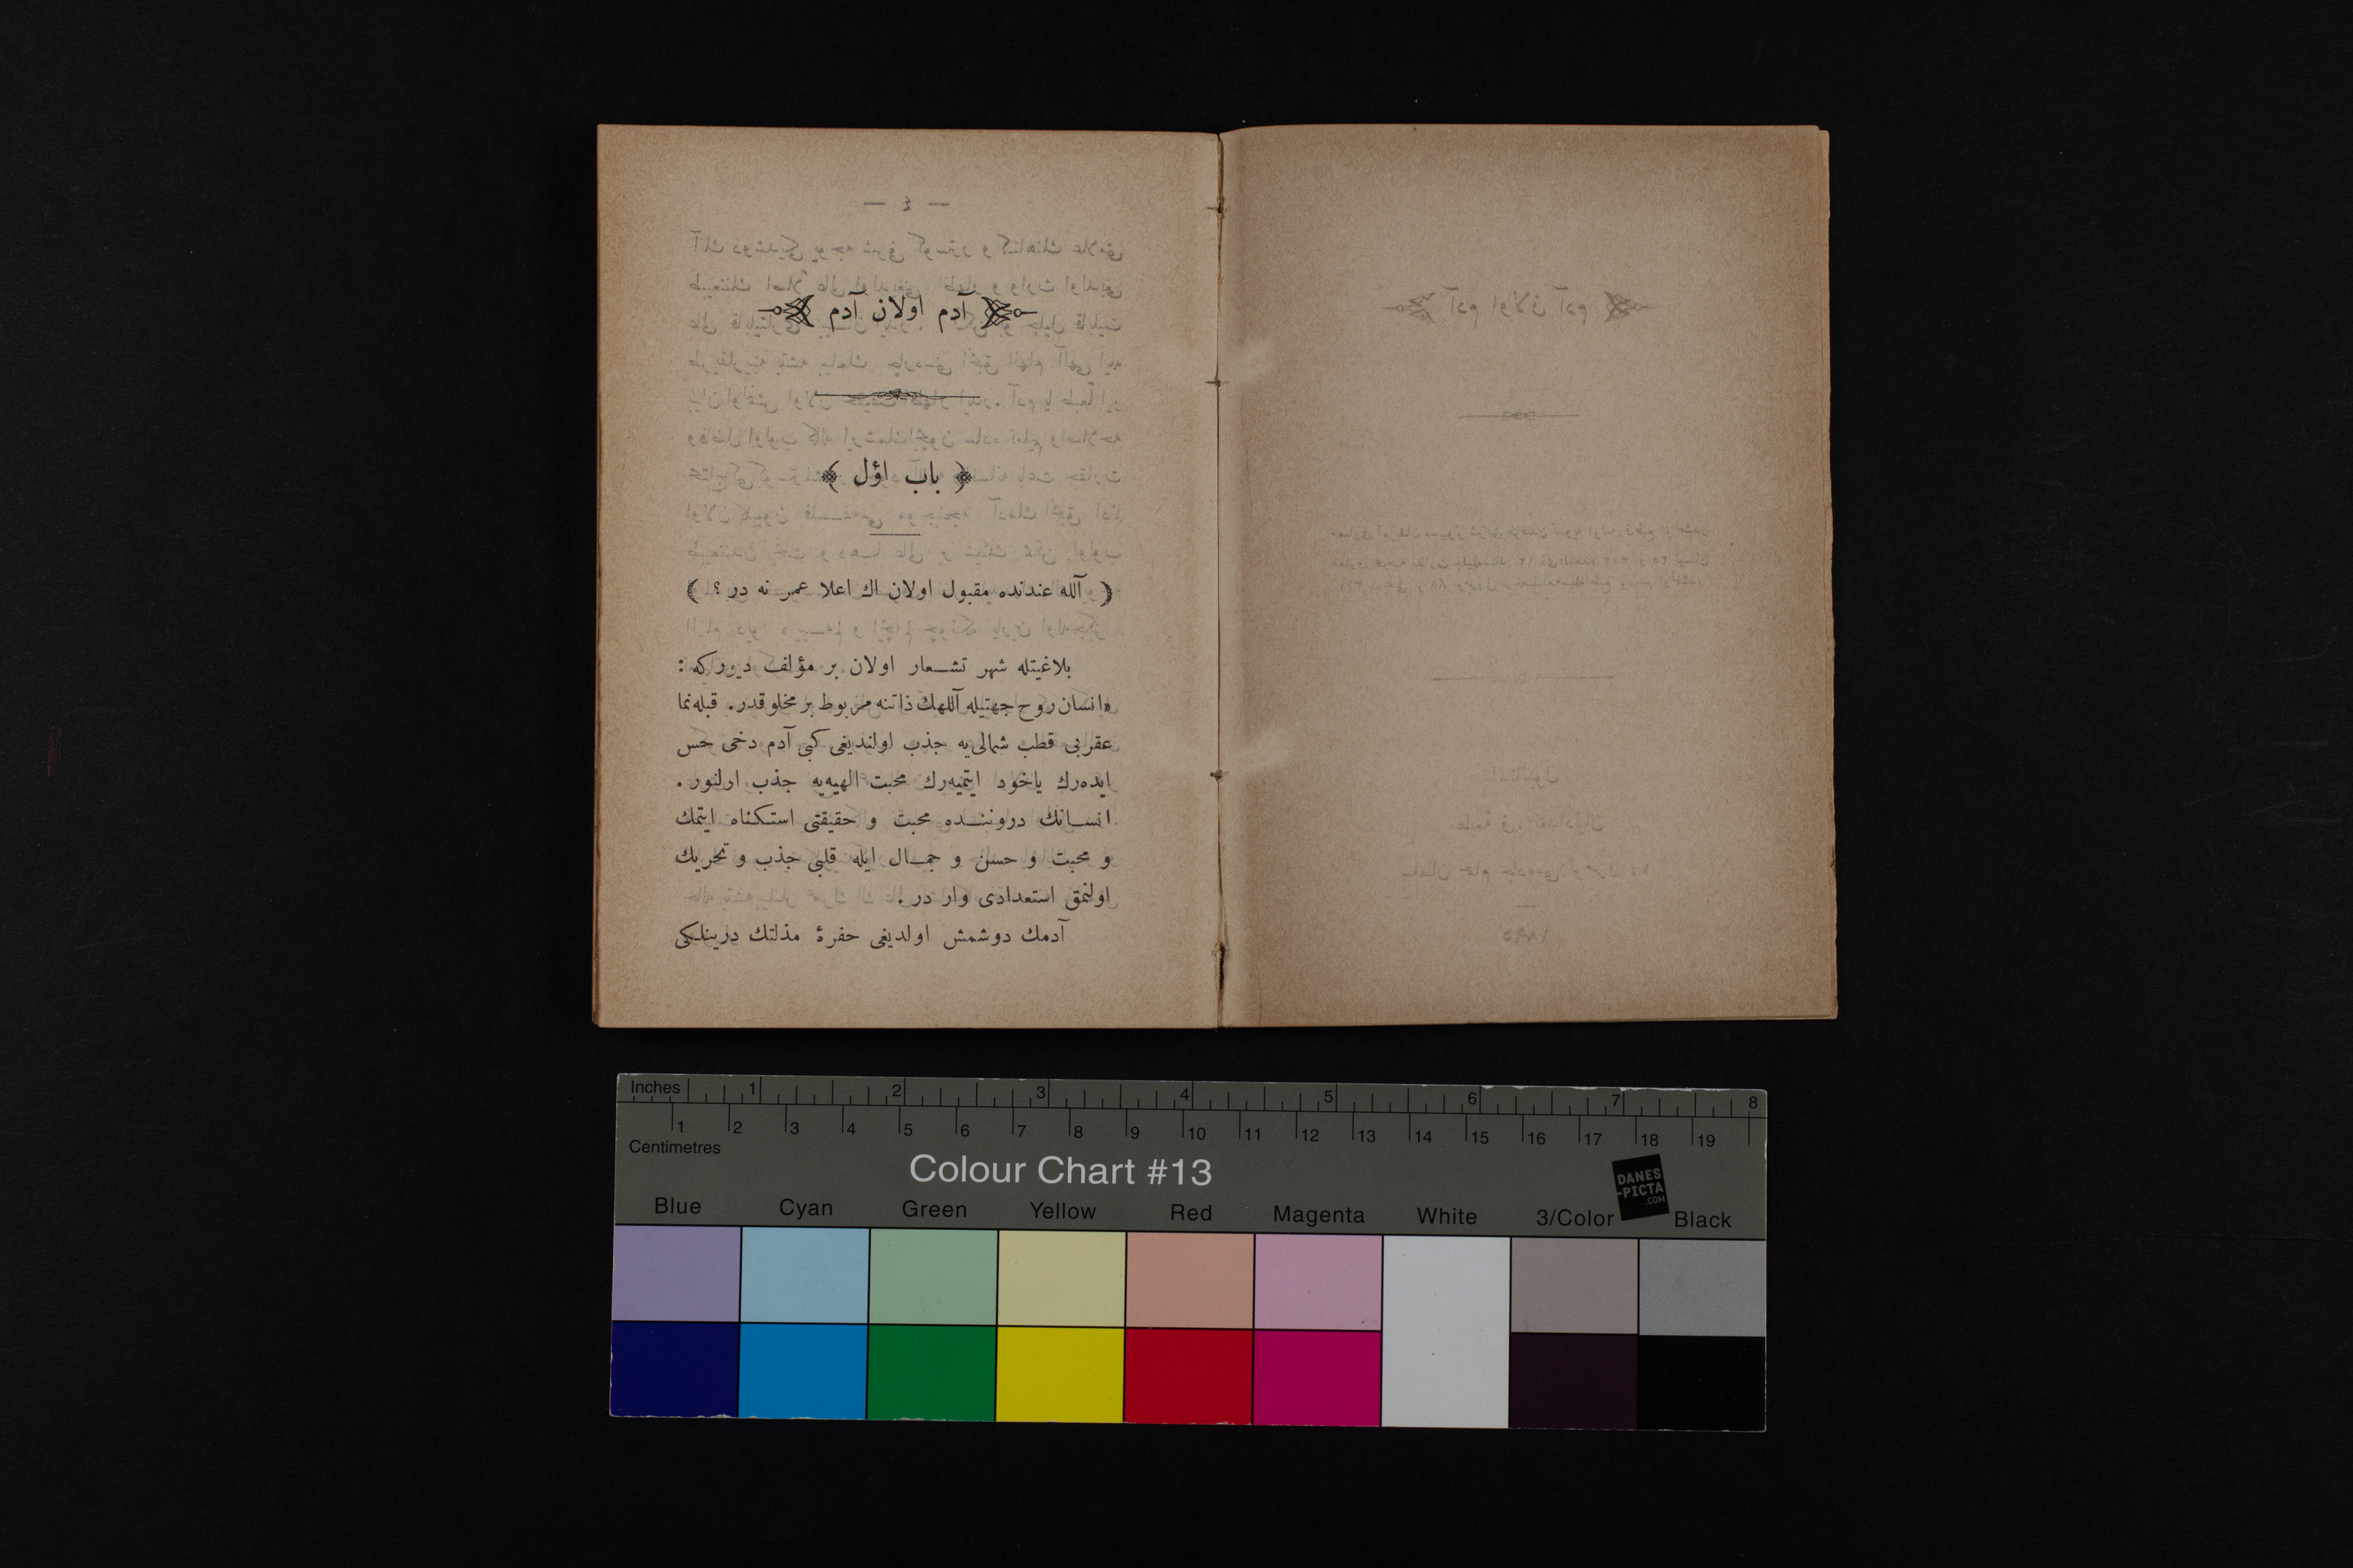 آدم اولان آدم
باب اوّل
﴿ آلله عندنده مقبول اولان اك اعلا عمر نه در ؟ ﴾
بلاغیتله شهر تشعار اولان بر مؤلف دیور که :
«انسان روح جهتیله آللهك ذاتنه مربوط بر مخلوقدر. قبله‌نما
عقربی قطب شمالی‌یه جذب اولندیغی کبی آدم دخی حس
ایده‌رك یاخود ایتمیه‌رك محبت الهیه‌یه جذب ارلنور .
انسانك دروننده محبت و حقیقتی استکناه ایتمك
و محبت و حسن و جمال ایله قلبی جذب و تحریك
اولنمق استعدادی وار در .
آدمك دوشمش اولدیغی حفرهٔ مذلتك درینلکی
Inches 1 2 3 4 5 6 7 8
1 2 3 4 5 6 7 8 9 10 11 12 13 14 15 16 17 18 19
Centimetres
Colour Chart #13
DANES
-PICTA
.COM
Blue Cyan Green Yellow Red Magenta White 3/Color Black